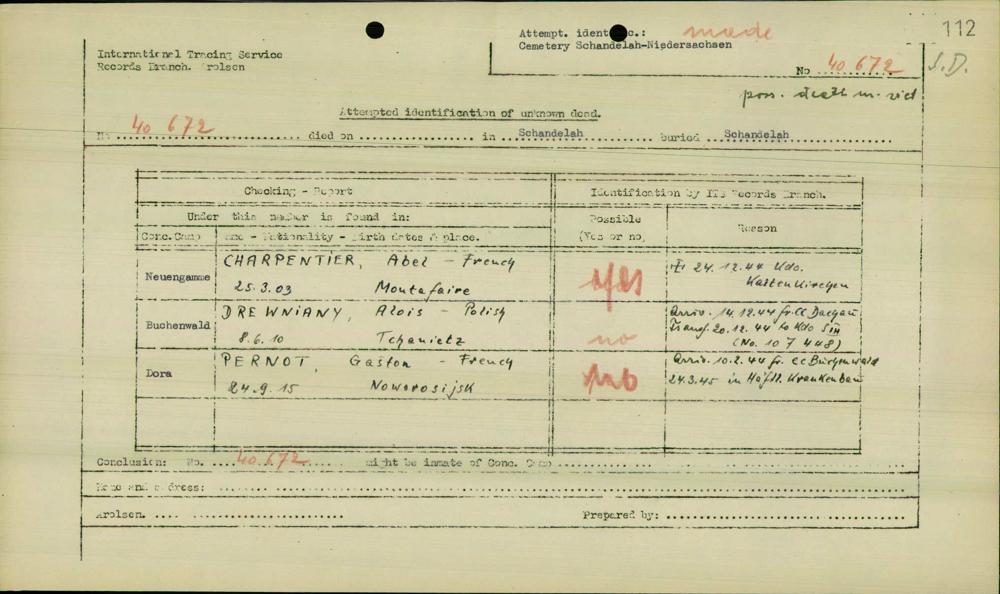 112
Attempt. ident c.: made
Cemetery Schandelah-Niedersachsen
International Tracing Service
Records Branch. Arolsen
No 40 672
S.D.
poss. death m.
Attempted identification of unknown dead.
No 40 672 died on in Schandelah buried Schandelah
Checking - Report
Identification by ITS Records Branch.
Under this number is found in:
Possible
(Yes or no)
Reason
Conc.Camp
Name - Nationality - Birth dates & place.
Neuengamme
CHARPENTIER, Abel - French
25.3.03 Montafaire
yes
24.12.44 Kdo.
Kaltenkirchen
Buchenwald
DREWNIANY, Alois - Polish
8.6.10 Tchanietz
no
Arriv. 14.12.44 fr. CC Dachau
Transf. 20.12.44 to Kdo S III
(No. 107 448)
Dora
PERNOT, Gaston - French
24.9.15 Noworosijsk
Arriv. 10.2.44 fr. CC Buchenwald
24.3.45 in Häftl. Krankenbau
Conclusion: No. 40.672 might be inmate of Conc. Camp
Name and address:
Arolsen.
Prepared by: